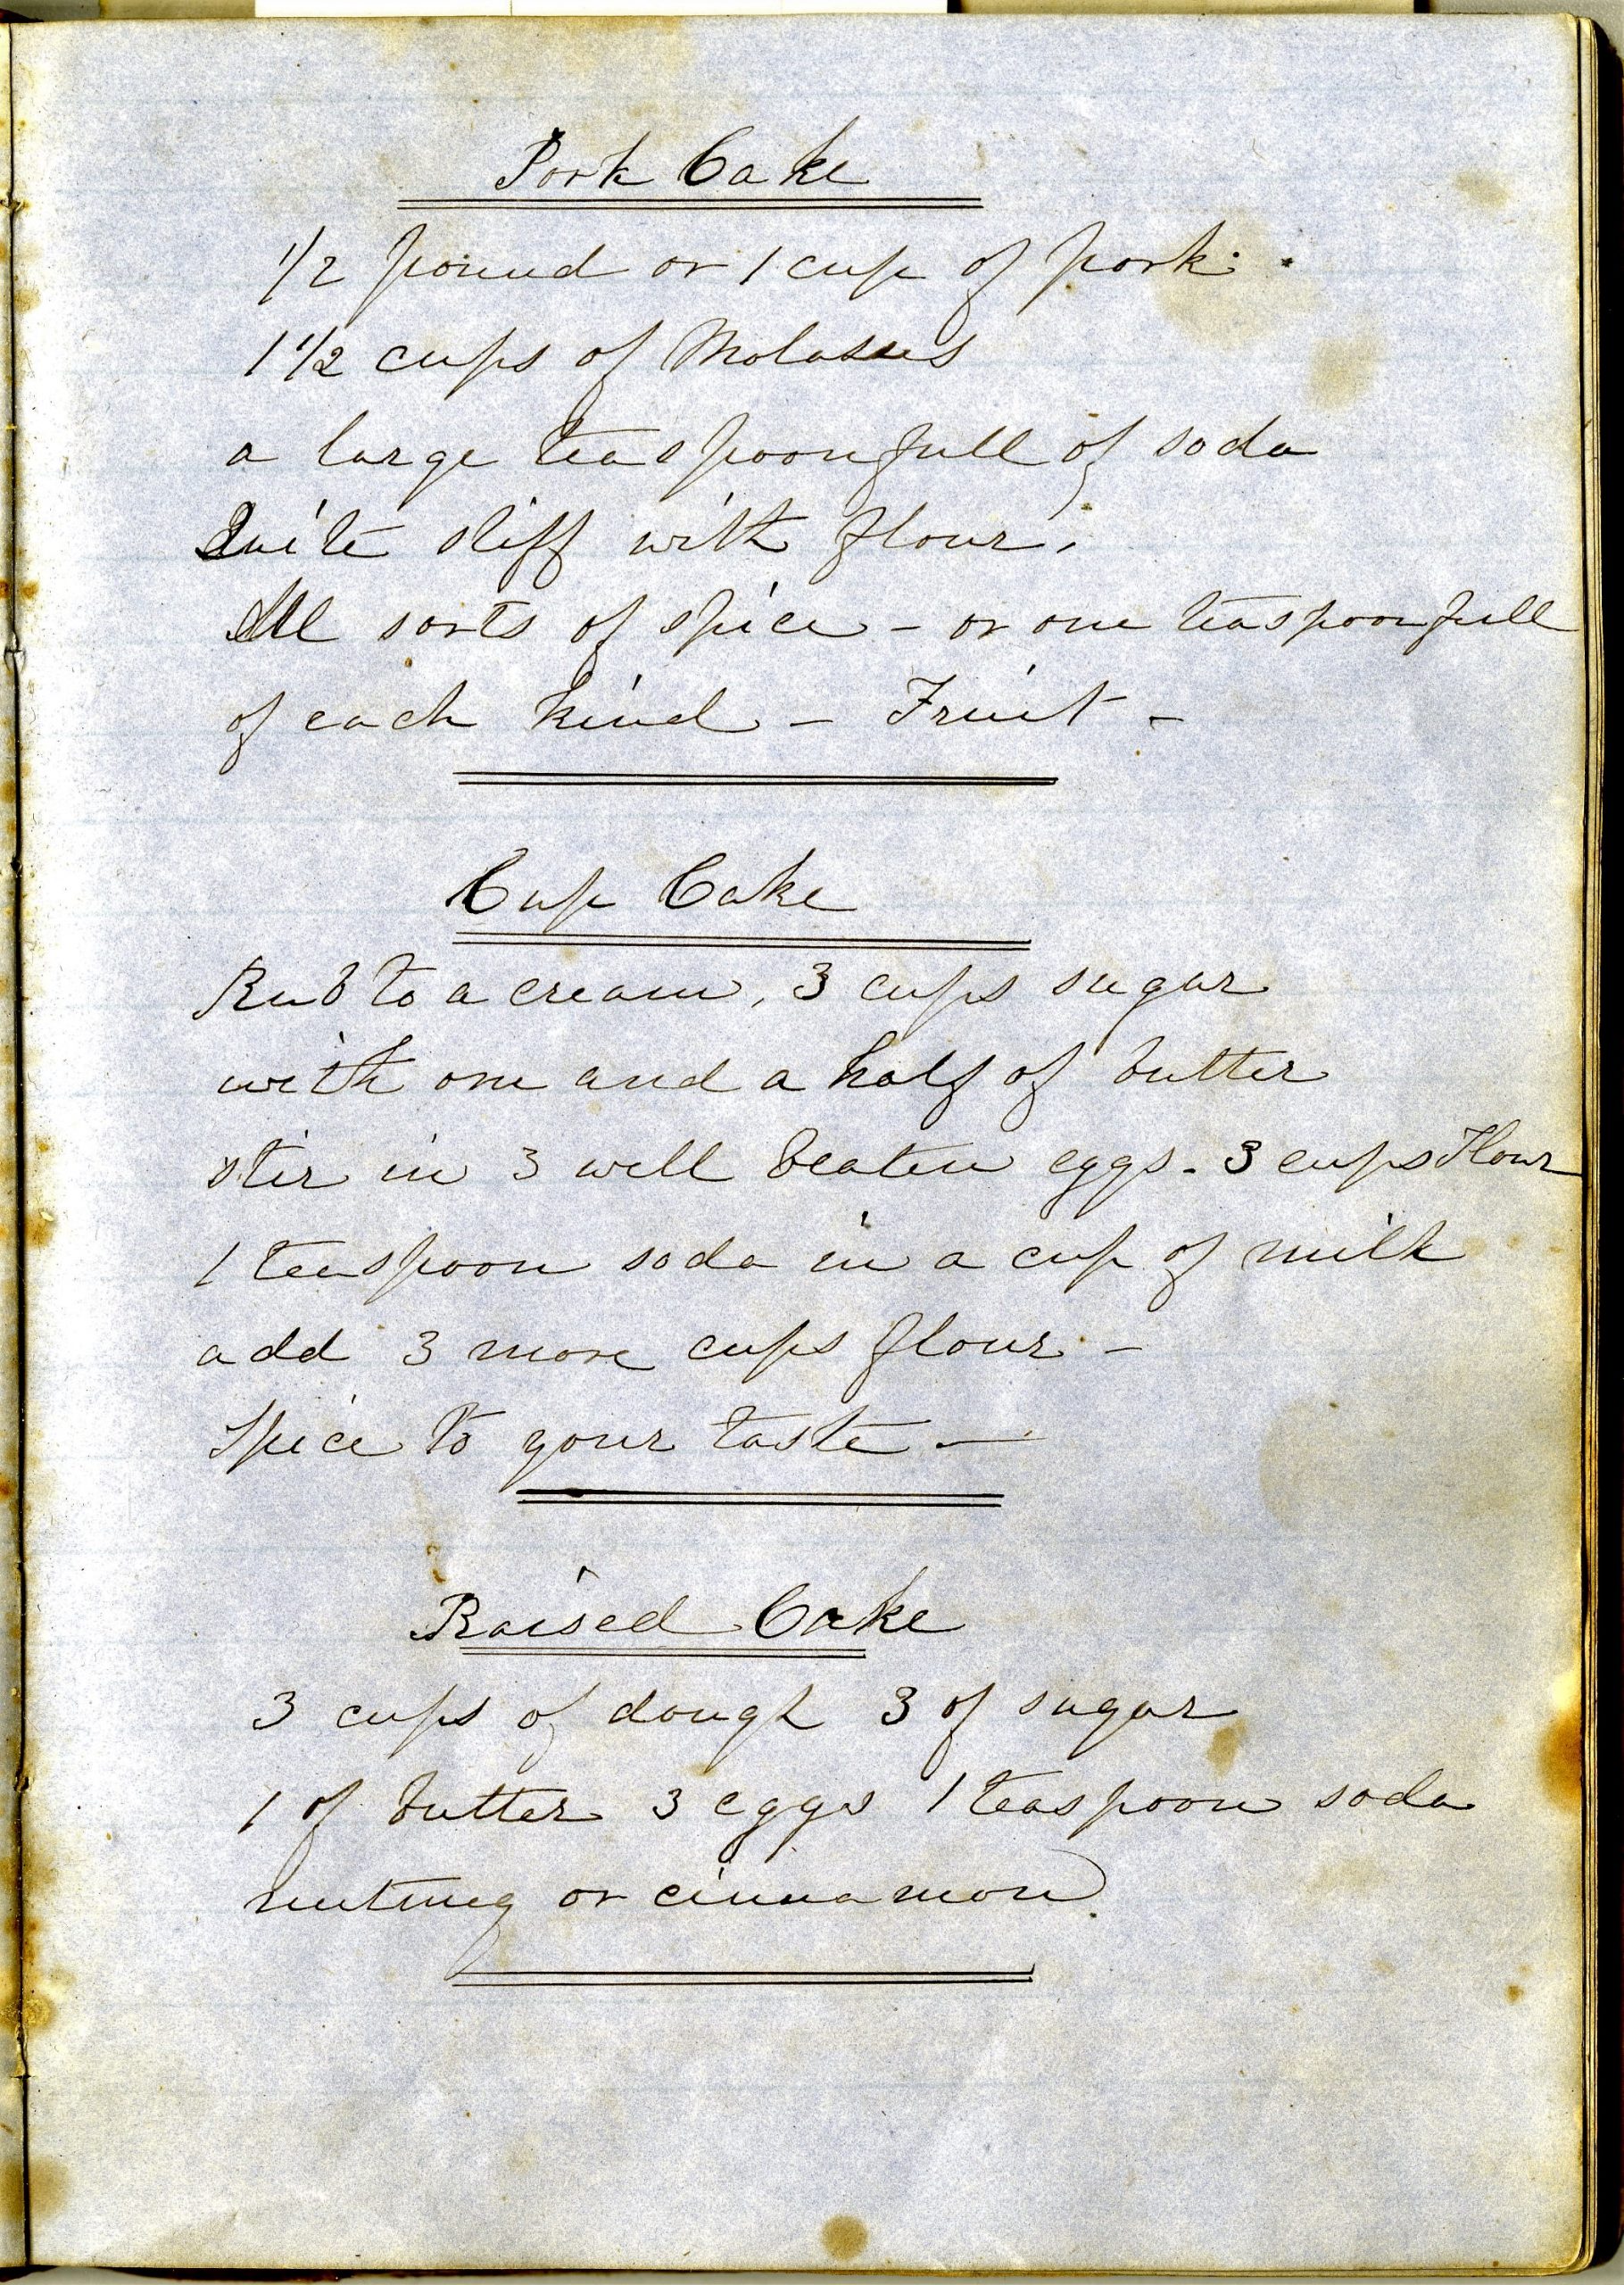 Pork Cake
1/2 pound or 1 cup of pork.
1 1/2 cups of Molasses
a large teaspoonfull of soda
Quite stiff with flour.
All sorts of spice - or one teaspoonfull
of each kind - Fruit -
Cup Cake
Rub to a cream, 3 cups sugar
with one and a half of butter
stir in 3 well beaten eggs - 3 cups Flour
1 teaspoon soda in a cup of milk
add 3 more cups flour -
Spice to your taste -
Raised Cake
3 cups of dough 3 of sugar
1 of butter 3 eggs 1 teaspoon soda
nutmeg or cinnamon